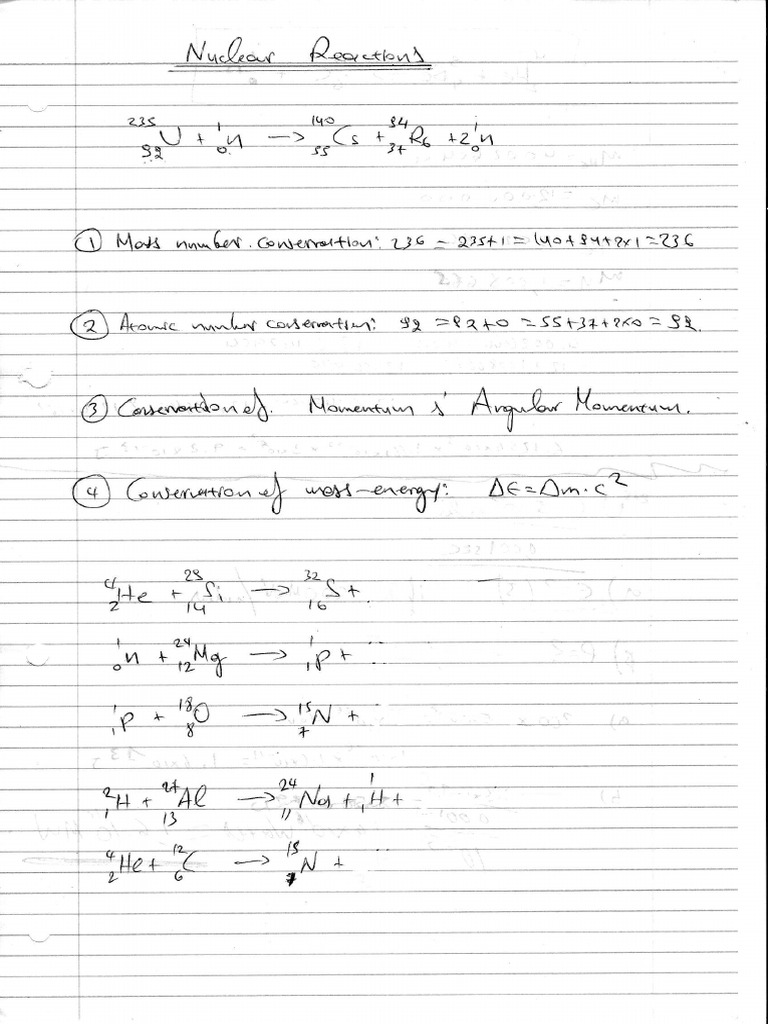 Nuclear Reactions
²³⁵₉₂U + ¹₀n → ¹⁴⁰₅₅Cs + ⁹⁴₃₇Rb + 2¹₀n
① Mass number conservation: 236 = 235+1 = 140+94+2x1 = 236
② Atomic number conservation: 92 = 92+0 = 55+37+2x0 = 92.
③ Conservation of. Momentum & Angular Momentum.
④ Conservation of mass-energy: ΔE = Δm·c²
⁴₂He + ²⁹₁₄Si → ³²₁₆S + .
¹₀n + ²⁴₁₂Mg → ¹₁P + ...
¹₁P + ¹⁸₈O → ¹⁵₇N + ...
²₁H + ²⁷₁₃Al → ²⁴₁₁Na + ¹₁H +
⁴₂He + ¹²₆C → ¹⁵₇N + ...